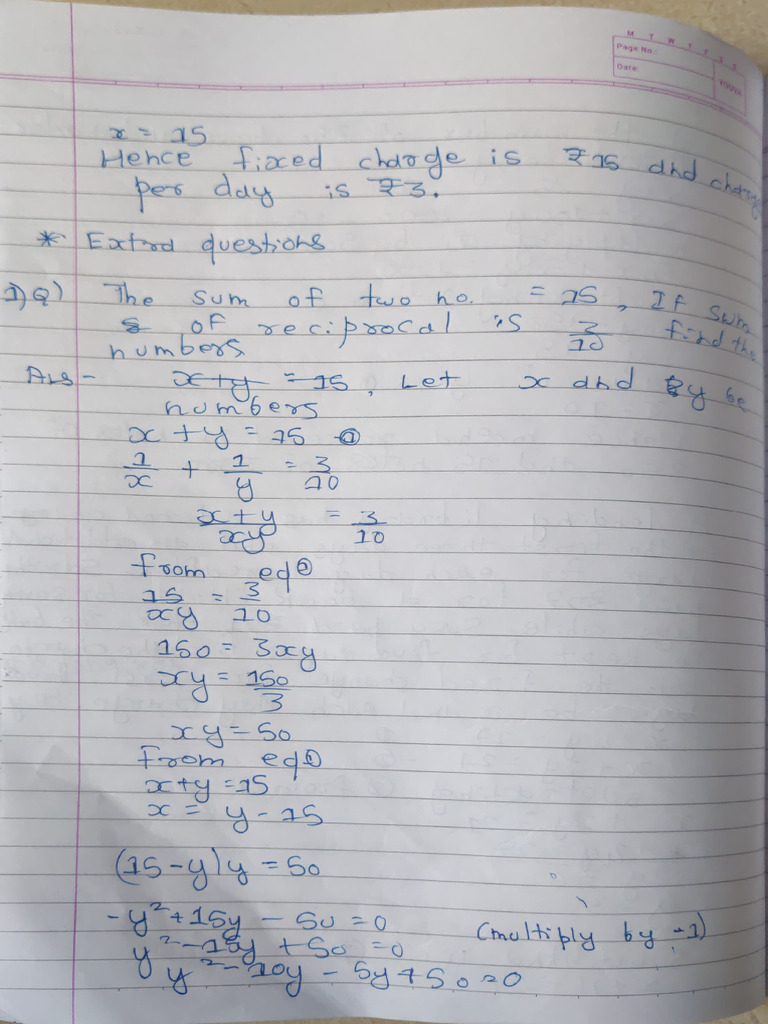 M T W T F S S
Page No.:
Date:
YOUVA
x = 15
Hence fixed charge is ₹15 and charge
per day is ₹3.
* Extra questions
1) Q) The sum of two no. = 15, If sum
of reciprocal is 3/10 find the
numbers
Ans - x+y = 15, Let x and y be
numbers
x + y = 15 ①
1/x + 1/y = 3/10
x+y/xy = 3/10
from eq①
15/xy = 3/10
150 = 3xy
xy = 150/3
xy = 50
from eq①
x+y = 15
x = y - 15
(15-y)y = 50
-y²+15y - 50 = 0 (multiply by -1)
y²-15y + 50 = 0
y²-10y - 5y+50=0